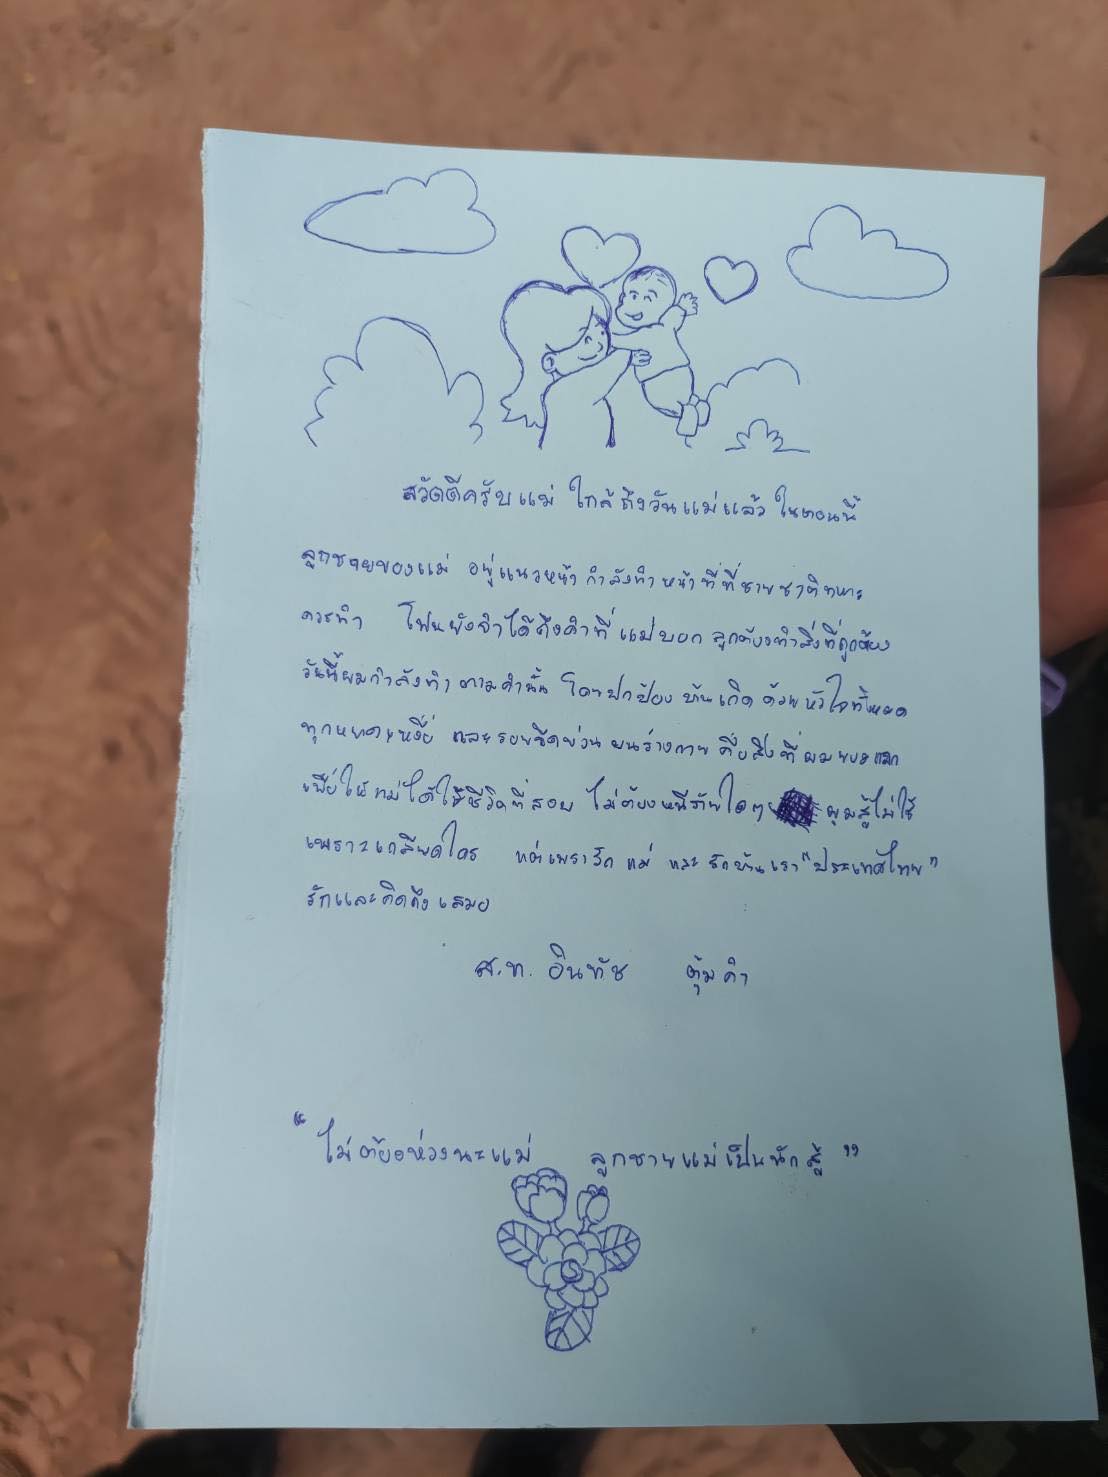 สวัตดีครับแม่ ใกล้ถึงวันแม่แล้ว ในตอนนี้
ลูกชายของแม่ อยู่แนวหน้า กำลังทำ หน้าที่ที่ชายชาติทหาร
ควรทำ โฟนยังจำได้ถึงคำที่ แม่บอก ลูกต้องทำสิ่งที่ถูกต้อง
วันนี้ผมกำลังทำ ตามคำนั้น โดยปกป้อง บ้านเกิด ด้วยหัวใจทั้งหมด
ทุกหยาดเหงื่อ และรอยขีดข่วน บนร่างกาย คือสิ่งที่ ผมขอแลก
เพื่อให้แม่ได้ใช้ชีวิตที่สงบ ไม่ต้องหนีภัยใดๆ ผมสู้ไม่ใช่
เพราะเกลียดใคร แต่เพราะรัก แม่ และ รักบ้านเรา "ประเทศไทย"
รักและคิดถึง เสมอ
ส.ท. อินทัช ตุ้มคำ
"ไม่ต้องห่วงนะแม่ ลูกชายแม่เป็นนักสู้"